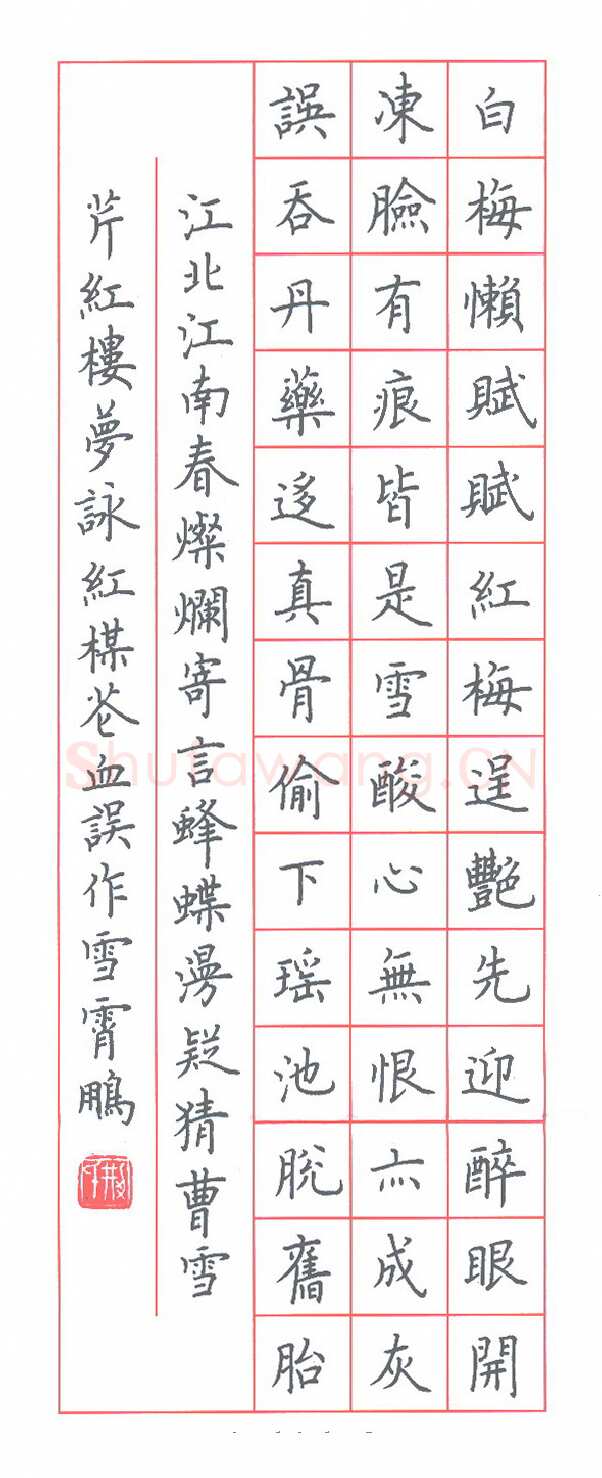 白梅懶賦賦紅梅逞艷先迎醉眼開
凍臉有痕皆是雪酸心無恨亦成灰
誤吞丹藥迻真骨偷下瑤池脫舊胎
江北江南春燦爛寄言蜂蝶漫疑猜曹雪
芹紅樓夢詠紅楳花血誤作雪霄鵬
Shufawang.CN